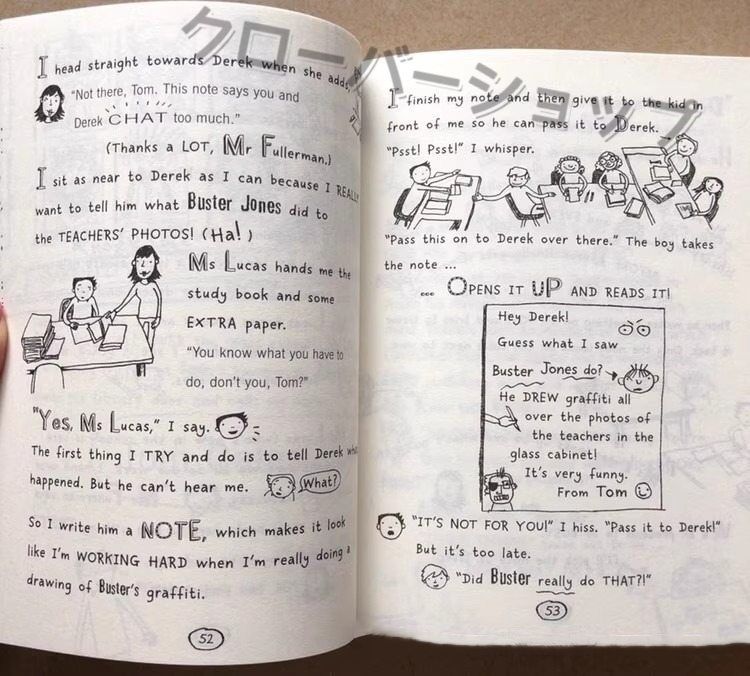 クローバーショップ
I head straight towards Derek when she adds,
"Not there, Tom. This note says you and
Derek CHAT too much."
(Thanks a LOT, Mr Fullerman.)
I sit as near to Derek as I can because I REALLY
want to tell him what Buster Jones did to
the TEACHERS' PHOTOS! (Ha!)
Ms Lucas hands me the
study book and some
EXTRA paper.
"You know what you have to
do, don't you, Tom?"
"Yes, Ms Lucas," I say.
The first thing I TRY and do is to tell Derek what
happened. But he can't hear me.
What?
So I write him a NOTE, which makes it look
like I'm WORKING HARD when I'm really doing a
drawing of Buster's graffiti.
52
I finish my note and then give it to the kid in
front of me so he can pass it to Derek.
"Psst! Psst!" I whisper.
"Pass this on to Derek over there." The boy takes
the note ...
... OPENS IT UP AND READS IT!
Hey Derek!
Guess what I saw
Buster Jones do?
He DREW graffiti all
over the photos of
the teachers in the
glass cabinet!
It's very funny.
From Tom
"IT'S NOT FOR YOU!" I hiss. "Pass it to Derek!"
But it's too late.
"Did Buster really do THAT?!"
53